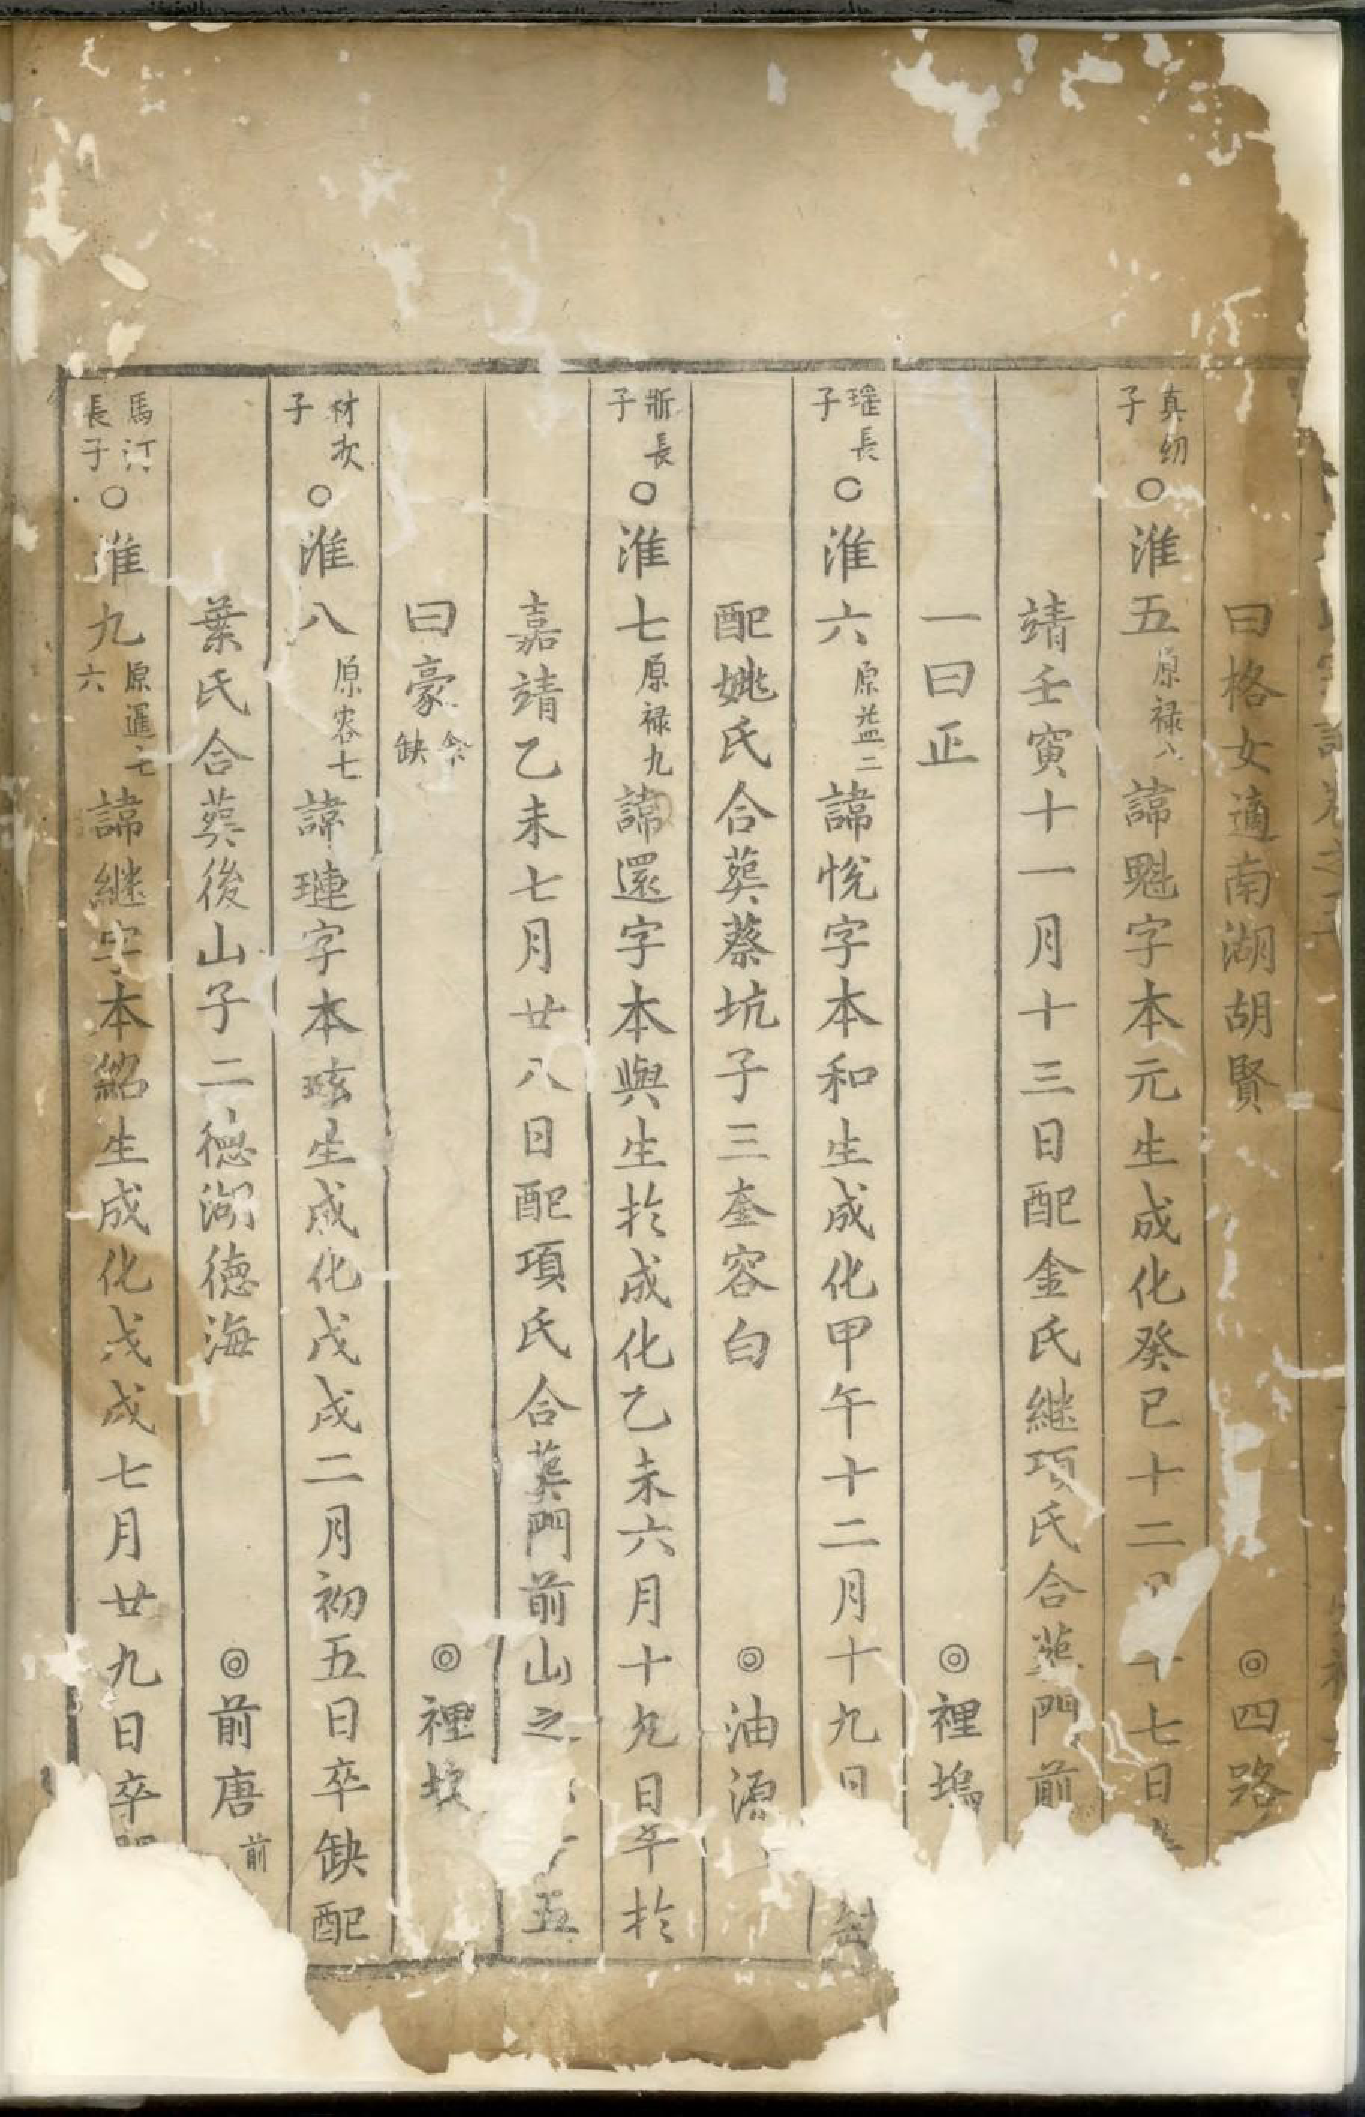 曰格女適南湖胡賢 ◎四路
真幼子○淮五原禄八諱魁字本元生成化癸巳十二 十七日
靖壬寅十一月十三日配金氏継項氏合葬門前
一曰正 ◎裡塢
瑶長子○淮六原益二諱悅字本和生成化甲午十二月十九日
配姚氏合葬蔡坑子三奎容白 ◎油源
長子○淮七原禄九諱還字本與生扵成化乙未六月十九日卒扵
嘉靖乙未七月廿八日配項氏合葬門前山之 五
曰豪余缺 ◎裡
材次子○淮八原容七諱璉字本玹生成化戊戌二月初五日卒缺配
葉氏合葬後山子二德湖德海 ◎前唐前
馬汀長子○淮九原暹七六諱継字本綿生成化戊戌七月廿九日卒